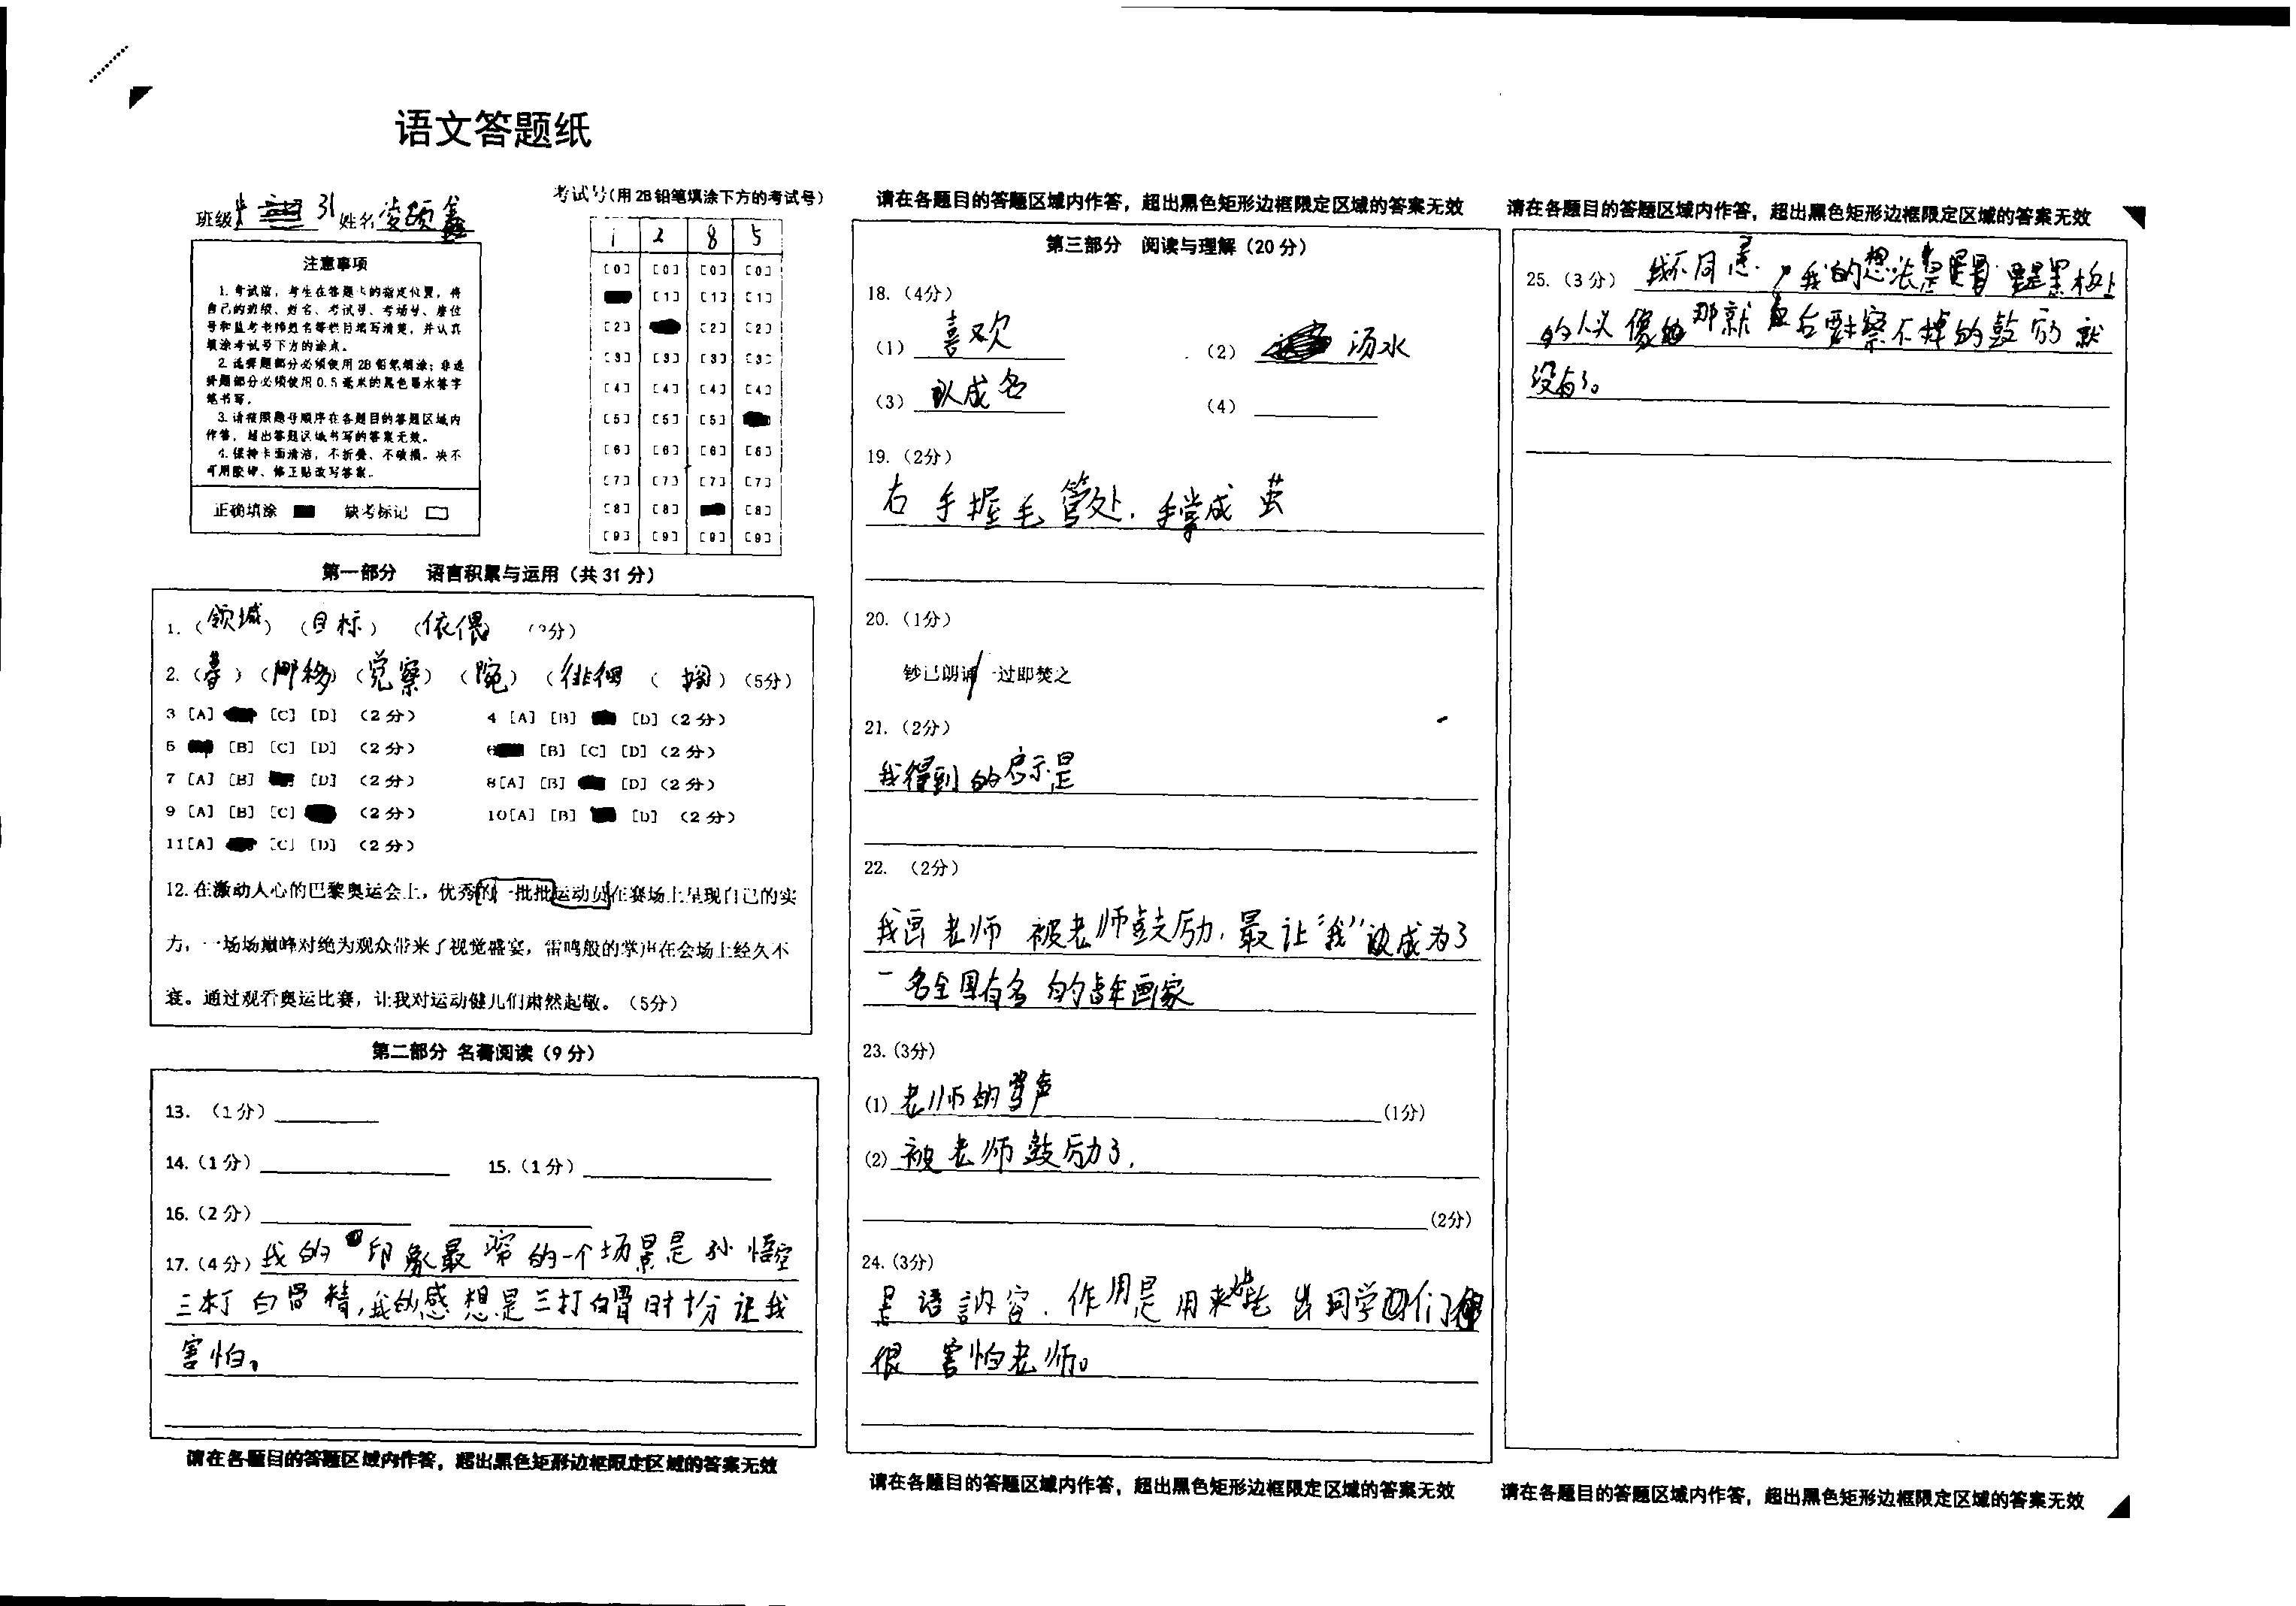 语文答题纸
班级 31 姓名 凌颂鑫
考试号(用2B铅笔填涂下方的考试号)
1 2 8 5
[0] [0] [0] [0]
[1] [1] [1]
[2] [2] [2]
[3] [3] [3] [3]
[4] [4] [4] [4]
[5] [5] [5]
[6] [6] [6] [6]
[7] [7] [7] [7]
[8] [8] [8]
[9] [9] [9] [9]
注意事项
1.考试前，考生在答题卡的指定位置，将
自己的班级、姓名、考试号、考场号、座位
号和监考老师姓名等栏目填写清楚，并认真
填涂考试号下方的涂点。
2.选择题部分必须使用2B铅笔填涂；非选
择题部分必须使用0.5毫米的黑色墨水签字
笔书写。
3.请按照题号顺序在各题目的答题区域内
作答，超出答题区域书写的答案无效。
4.保持卡面清洁，不折叠、不破损。决不
可用胶带、修正贴改写答案。
正确填涂 缺考标记
第一部分 语言积累与运用（共31分）
1.（领域）（目标）（依偎）
2.（ ）（挪移）（觉察）（ ）（徘徊（ 搁）（5分）
3 [A] [C] [D] （2分） 4 [A] [B] [D]（2分）
5 [B] [C] [D] （2分） 6 [B] [C] [D]（2分）
7 [A] [B] [D] （2分） 8[A] [B] [D]（2分）
9 [A] [B] [C] （2分） 10[A] [B] [D] （2分）
11[A] [C] [D] （2分）
12.在激动人心的巴黎奥运会上，优秀的一批批运动员在赛场上呈现自己的实
力，一场场巅峰对绝为观众带来了视觉盛宴，雷鸣般的掌声在会场上经久不
衰。通过观看奥运比赛，让我对运动健儿们肃然起敬。（5分）
第二部分 名著阅读（9分）
13.（1分）
14.（1分） 15.（1分）
16.（2分）
17.（4分）我的印象最深的一个场景是孙悟空
三打白骨精，我的感想是三打白骨时十分让我
害怕。
请在各题目的答题区域内作答，超出黑色矩形边框限定区域的答案无效
请在各题目的答题区域内作答，超出黑色矩形边框限定区域的答案无效
第三部分 阅读与理解（20分）
18.（4分）
（1）喜欢 （2）汤水
（3）以成名 （4）
19.（2分）
右手握毛管处，手掌成茧
20.（1分）
钞已朗诵/一过即焚之
21.（2分）
我得到的启示是
22.（2分）
我画老师 被老师鼓励，最让“我”成为了
一名全国有名的青年画家
23.（3分）
（1）老师的掌声（1分）
（2）被老师鼓励了，
（2分）
24.（3分）
是语言内容，作用是用来 出同学们
很害怕老师。
请在各题目的答题区域内作答，超出黑色矩形边框限定区域的答案无效
请在各题目的答题区域内作答，超出黑色矩形边框限定区域的答案无效
25.（3分）我不同意，我的想法是 黑板上
的人像 那就 后 擦不掉的鼓励就
没有了。
请在各题目的答题区域内作答，超出黑色矩形边框限定区域的答案无效